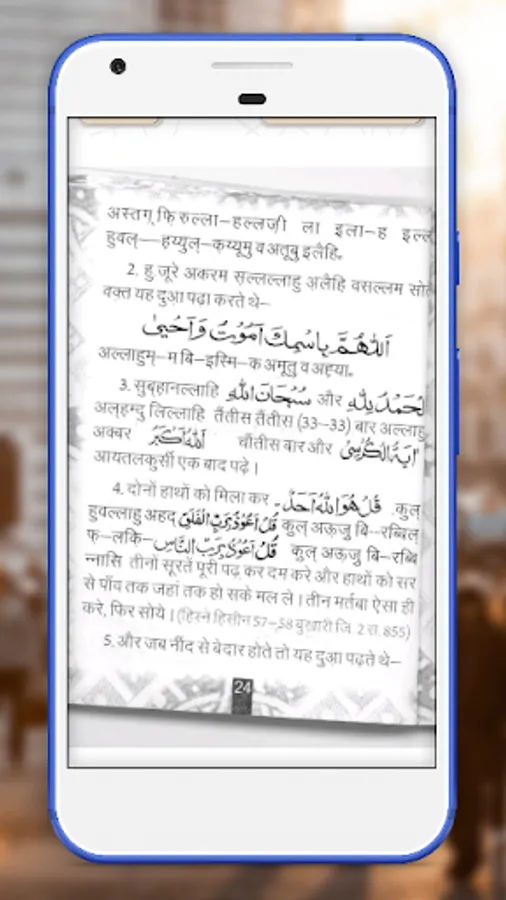 अस्तग़्फ़िरुल्ला–हल्लज़ी ला इला–ह इल्ल
हुवल्–––हय्युल्–क़य्यूमु व अतूबु इलैहि。
2. हु जूरे अकरम स़ल्लल्लाहु अ़लैहि वसल्लम सोते
वक़्त यह दुआ़ पढ़ा करते थे–
اَللّٰهُمَّ بِاسْمِكَ اَمُوْتُ وَاَحْيٰى
अल्लाहुम्–म बि–इस्मि–क अमूतु व अह़्या。
3. सुब्‌हानल्लाहि سُبْحَانَ اللّٰهِ और لْحَمْدُ لِلّٰهِ
अल्‌हम्दु लिल्लाहि तैंतीस तैंतीस (33–33) बार अल्लाहु
अक्बर اَللّٰهُ اَكْبَرُ चौंतीस बार और اٰيَةُ الْكُرْسِىْ
आयतलकुर्सी एक बाद पढ़े।
4. दोनों हाथों को मिला कर قُلْ هُوَ اللّٰهُ اَحَدٌ कुल्
हुवल्लाहु अहद قُلْ اَعُوْذُ بِرَبِّ الْفَلَقِ कुल् अऊ़ज़ु बि–रब्बिल्
फ़–लकि– قُلْ اَعُوْذُ بِرَبِّ النَّاسِ कुल् अऊ़ज़ु बि–रब्बि
न्नासि तीनों सूरतें पूरी पढ़ कर दम करे और हाथों को सर
से पाँव तक जहां तक हो सके मल ले। तीन मर्तबा ऐसा ही
करे, फिर सोये। (हिस्ने हिसीन 57–58 बुख़ारी जि. 2 स. 855)
5. और जब नींद से बेदार होते तो यह दुआ़ पढ़ते थे–
24